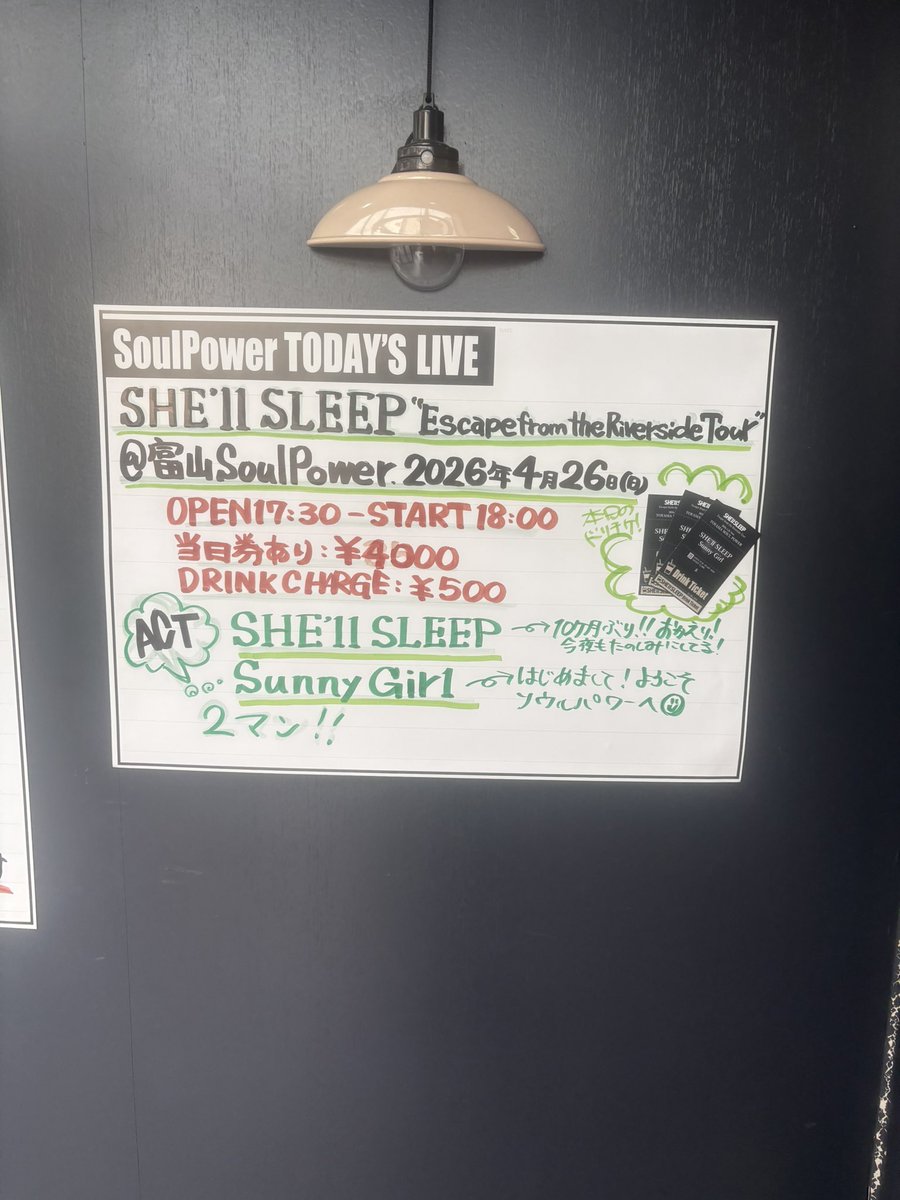 SoulPower TODAY'S LIVE
SHE'll SLEEP "Escape from the Riverside Tour"
@富山SoulPower. 2026年4月26日(日)
OPEN17:30-START 18:00
当日券あり:¥4000
DRINK CHRGE:¥500
本日のドリチケ!
SHE'll SLEEP
Sunny Girl
Drink Ticket
ACT
SHE'll SLEEP
10ケ月ぶり!!おかえり!
今夜もたのしみにしてる!
Sunny Girl
はじめまして!ようこそ
ソウルパワーへ
2マン!!